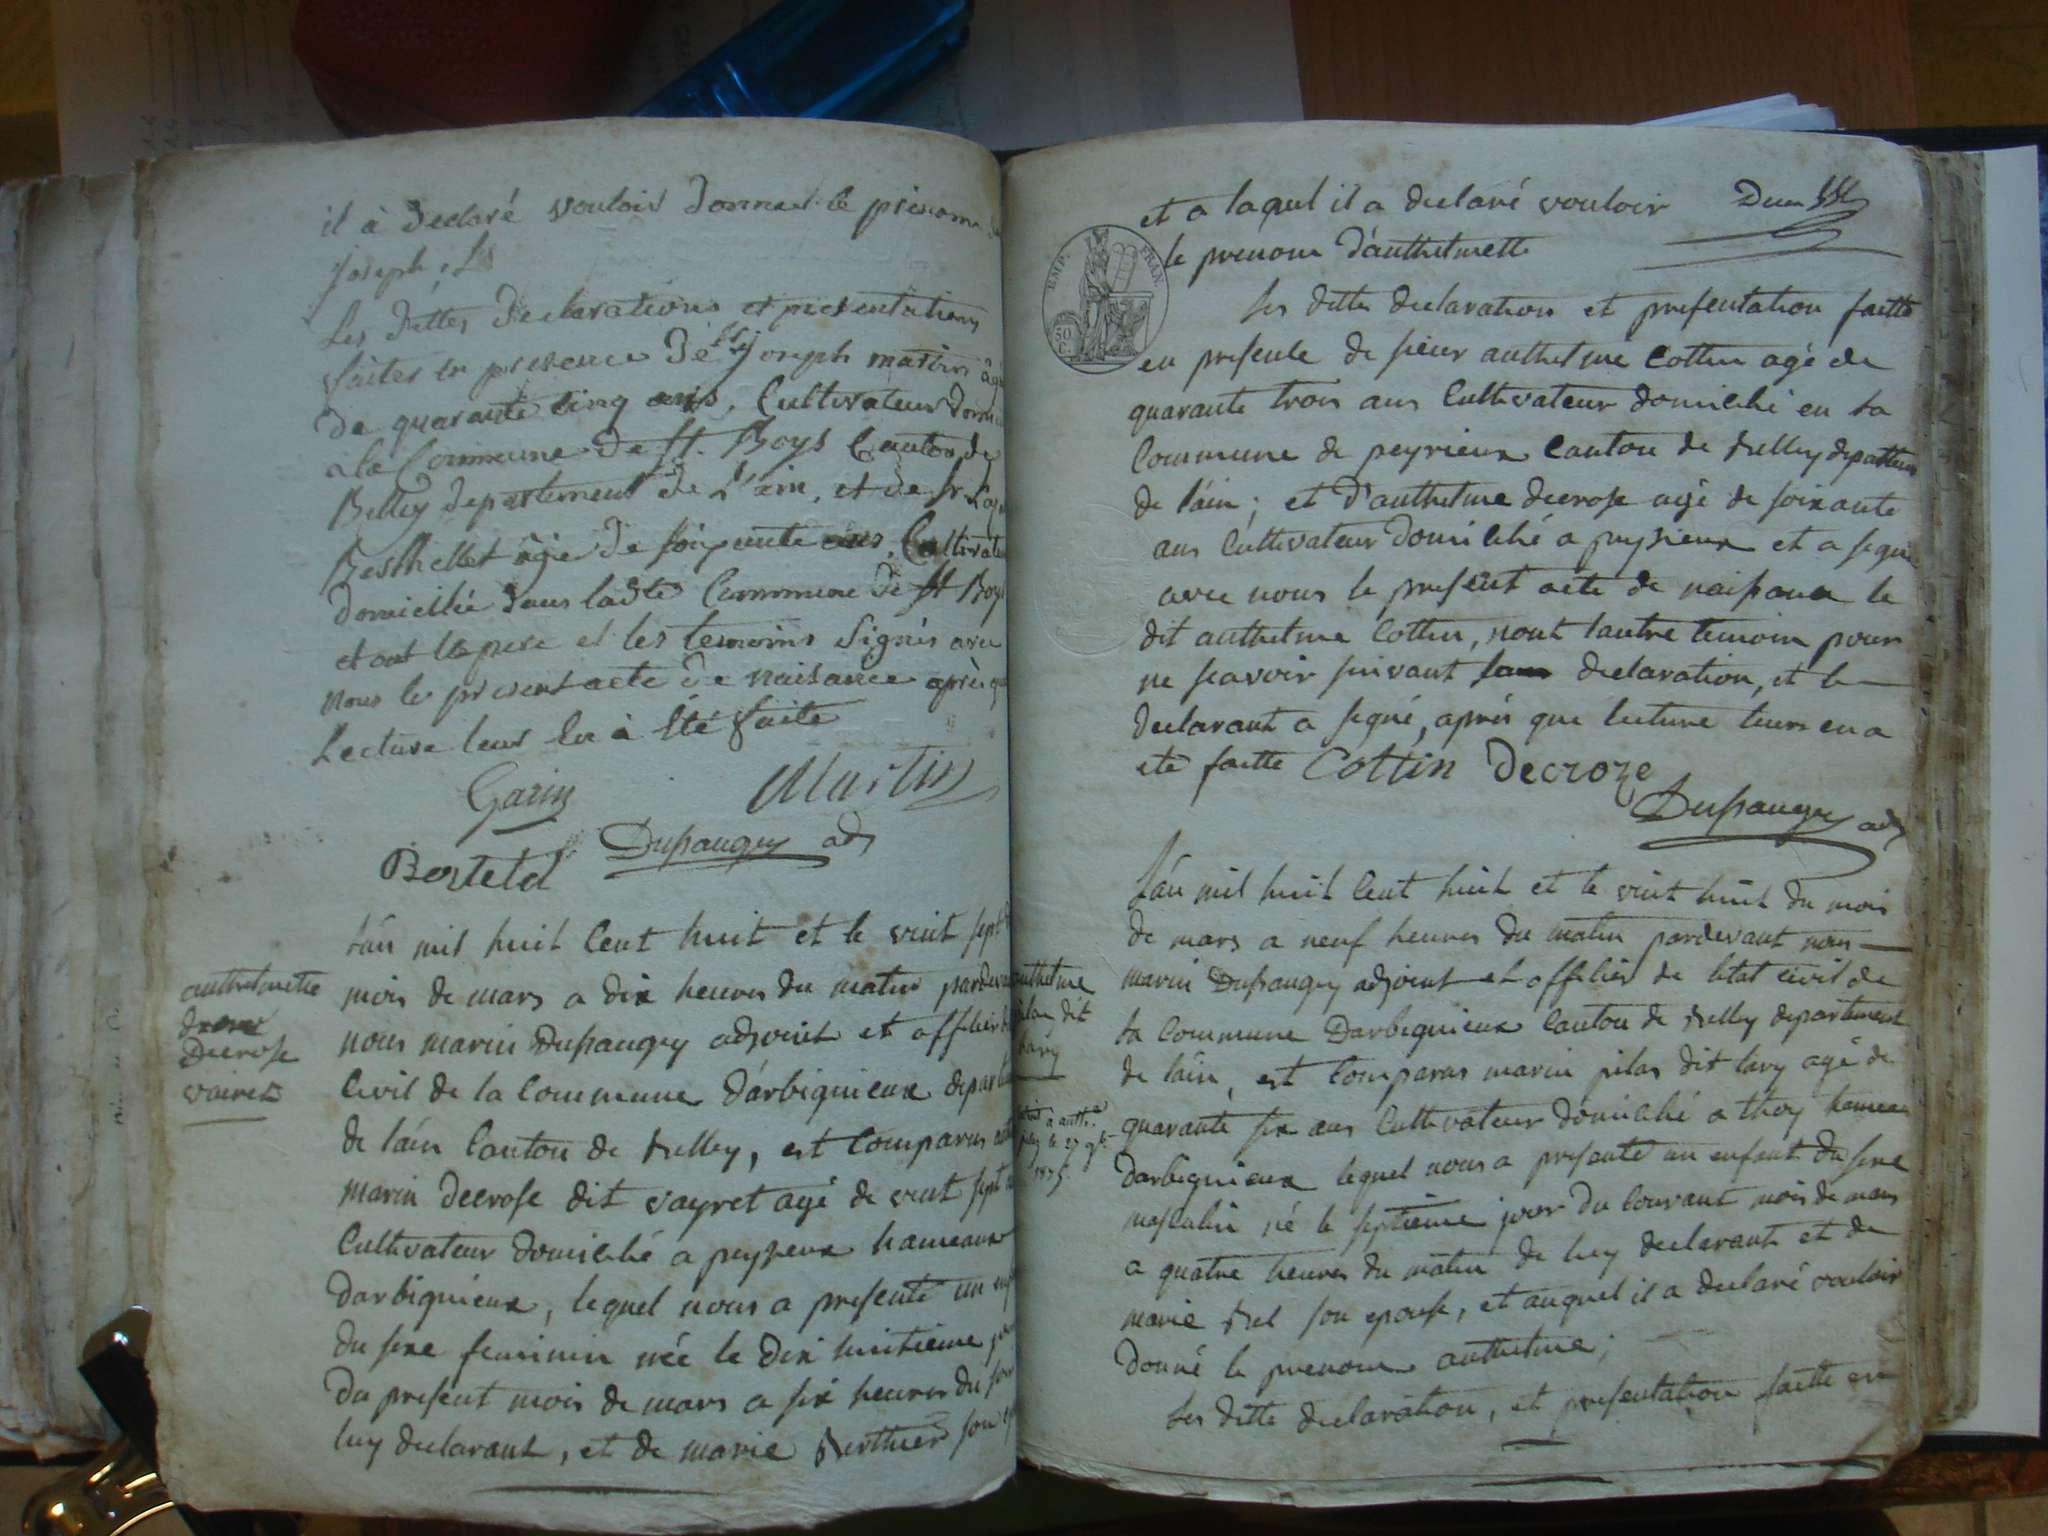 il à declaré vouloir donner le prenom
joseph, Ls
Les dittes declarations et presentations
faites en presence de joseph martin
de quarante cinq ans, Cultivateur
a la Commune de St. Boys Canton de
Belley departement de L'ain, et de sr
Berthellet âge de soixante ans, Cultivate
domiciliée dans ladte Commune de St Boys
et ont le pere et les temoins signés avec
nous le present acte de naissance après que
Lecture leur en à Eté faite
Garin Martin
Dupaugey adj
Bertetd
authelmette
Decrose
vairet
L'an mil huit Cent huit et le vint sept
mois de mars a dix heures du matin pardevant
nous marin Dupaugey adjoint et officier
Civil de la Commune d'arbignieux depart
de l'ain Canton de Belley, est Comparus
marin Decrose dit vayret agé de vint sept
Cultivateur domicilié a peyzeux hameaux
darbignieux, lequel nous a presenté un
du sexe feminin née le dix huitieme
du present mois de mars a six heures du soir
luy declarant, et de marie Berthier son
et a laquel il a declaré vouloir
le prenom d'authelmette
EMP. FRAN.
50 C.
les ditte declaration et presentation faitte
en presence de sieur anthelme Cottin agé de
quarante trois ans Cultivateur domicilié en la
Commune de peyrieux Canton de Belley departement
de l'ain; et d'anthelme decrose agé de soixante
ans Cultivateur domicilié a peyzieux et a signé
avec nous le present acte de naissance le
dit anthelme Cottin, nont lautre temoin pour
ne scavoir suivant declaration, et le
declarant a signé, aprés que lecture leurs en a
eté faitte Cottin Decroze
Dupaugey adj
anthelme
pilar dit
lary
1875
L'an mil huit Cent huit et le vint huit du mois
de mars a neuf heures du matin pardevant nous
marin Dupaugey adjoint et officier de letat civil de
la Commune Darbignieux Canton de Belley departement
de l'ain, est Comparus marin pilar dit lary agé de
quarante six ans Cultivateur domicilié a thoy hameau
darbignieux lequel nous a presenté un enfant du sexe
masculin né le septieme jour du Courant mois de mars
a quatre heures du matin de luy declarant et de
marie Bel son epouse, et auquel il a declaré vouloir
donné le prenom anthelme;
les ditte declaration, et presentation faitte en